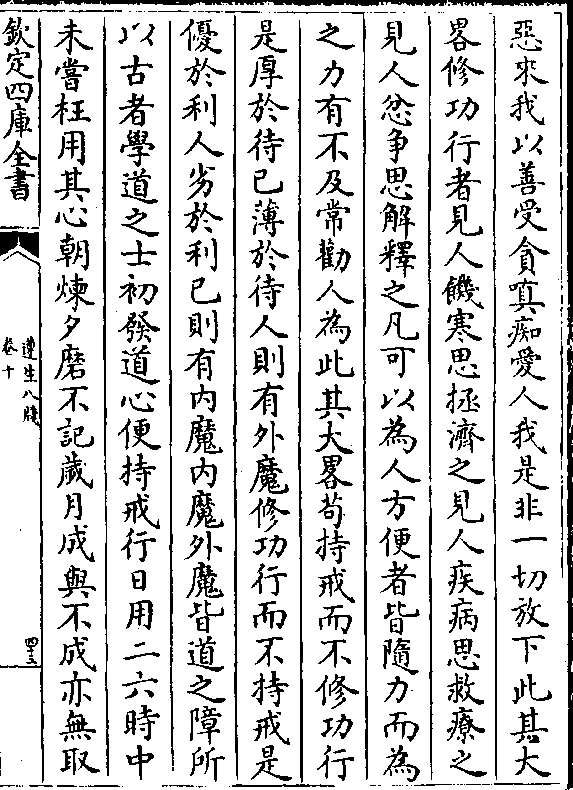 惡來我以善受貪嗔痴愛人我是非一切放下此其大
畧修功行者見人饑寒思拯濟之見人疾病思救療之
見人忿爭思解釋之凡可以為人方便者皆隨力而為
之力有不及常勸人為此其大畧苟持戒而不修功行
是厚於待已薄於待人則有外魔修功行而不持戒是
優於利人劣於利已則有内魔内魔外魔皆道之障所
以古者學道之士初發道心便持戒行日用二六時中
未嘗枉用其心朝煉夕磨不記歲月成與不成亦無取
欽定四庫全書
遵生八牋
卷十
四十三